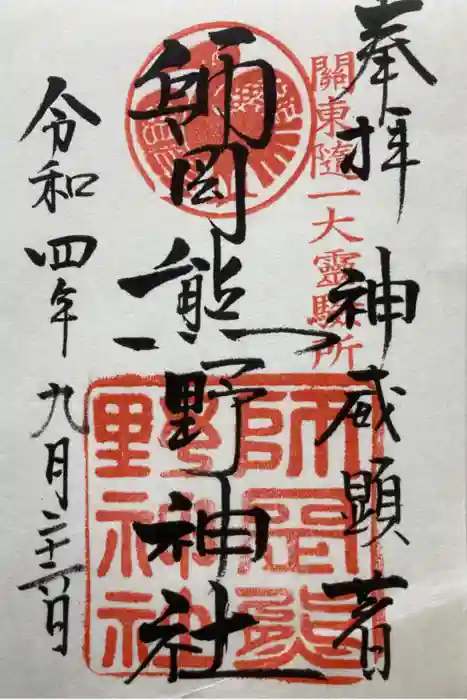 奉拝 神威顕著
關東隨一大靈驗所
師岡熊野神社
師岡熊
野神社
令和四年九月二十六日